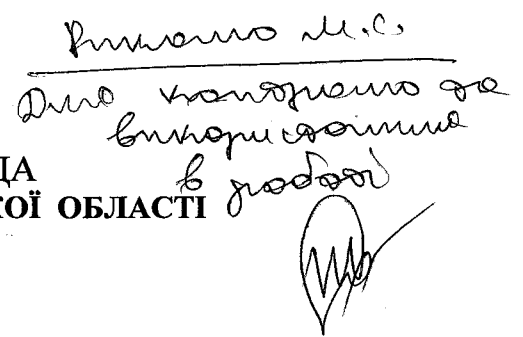 М.С.
Для контролю та
використання
в роботі
ДА
КОЇ ОБЛАСТІ